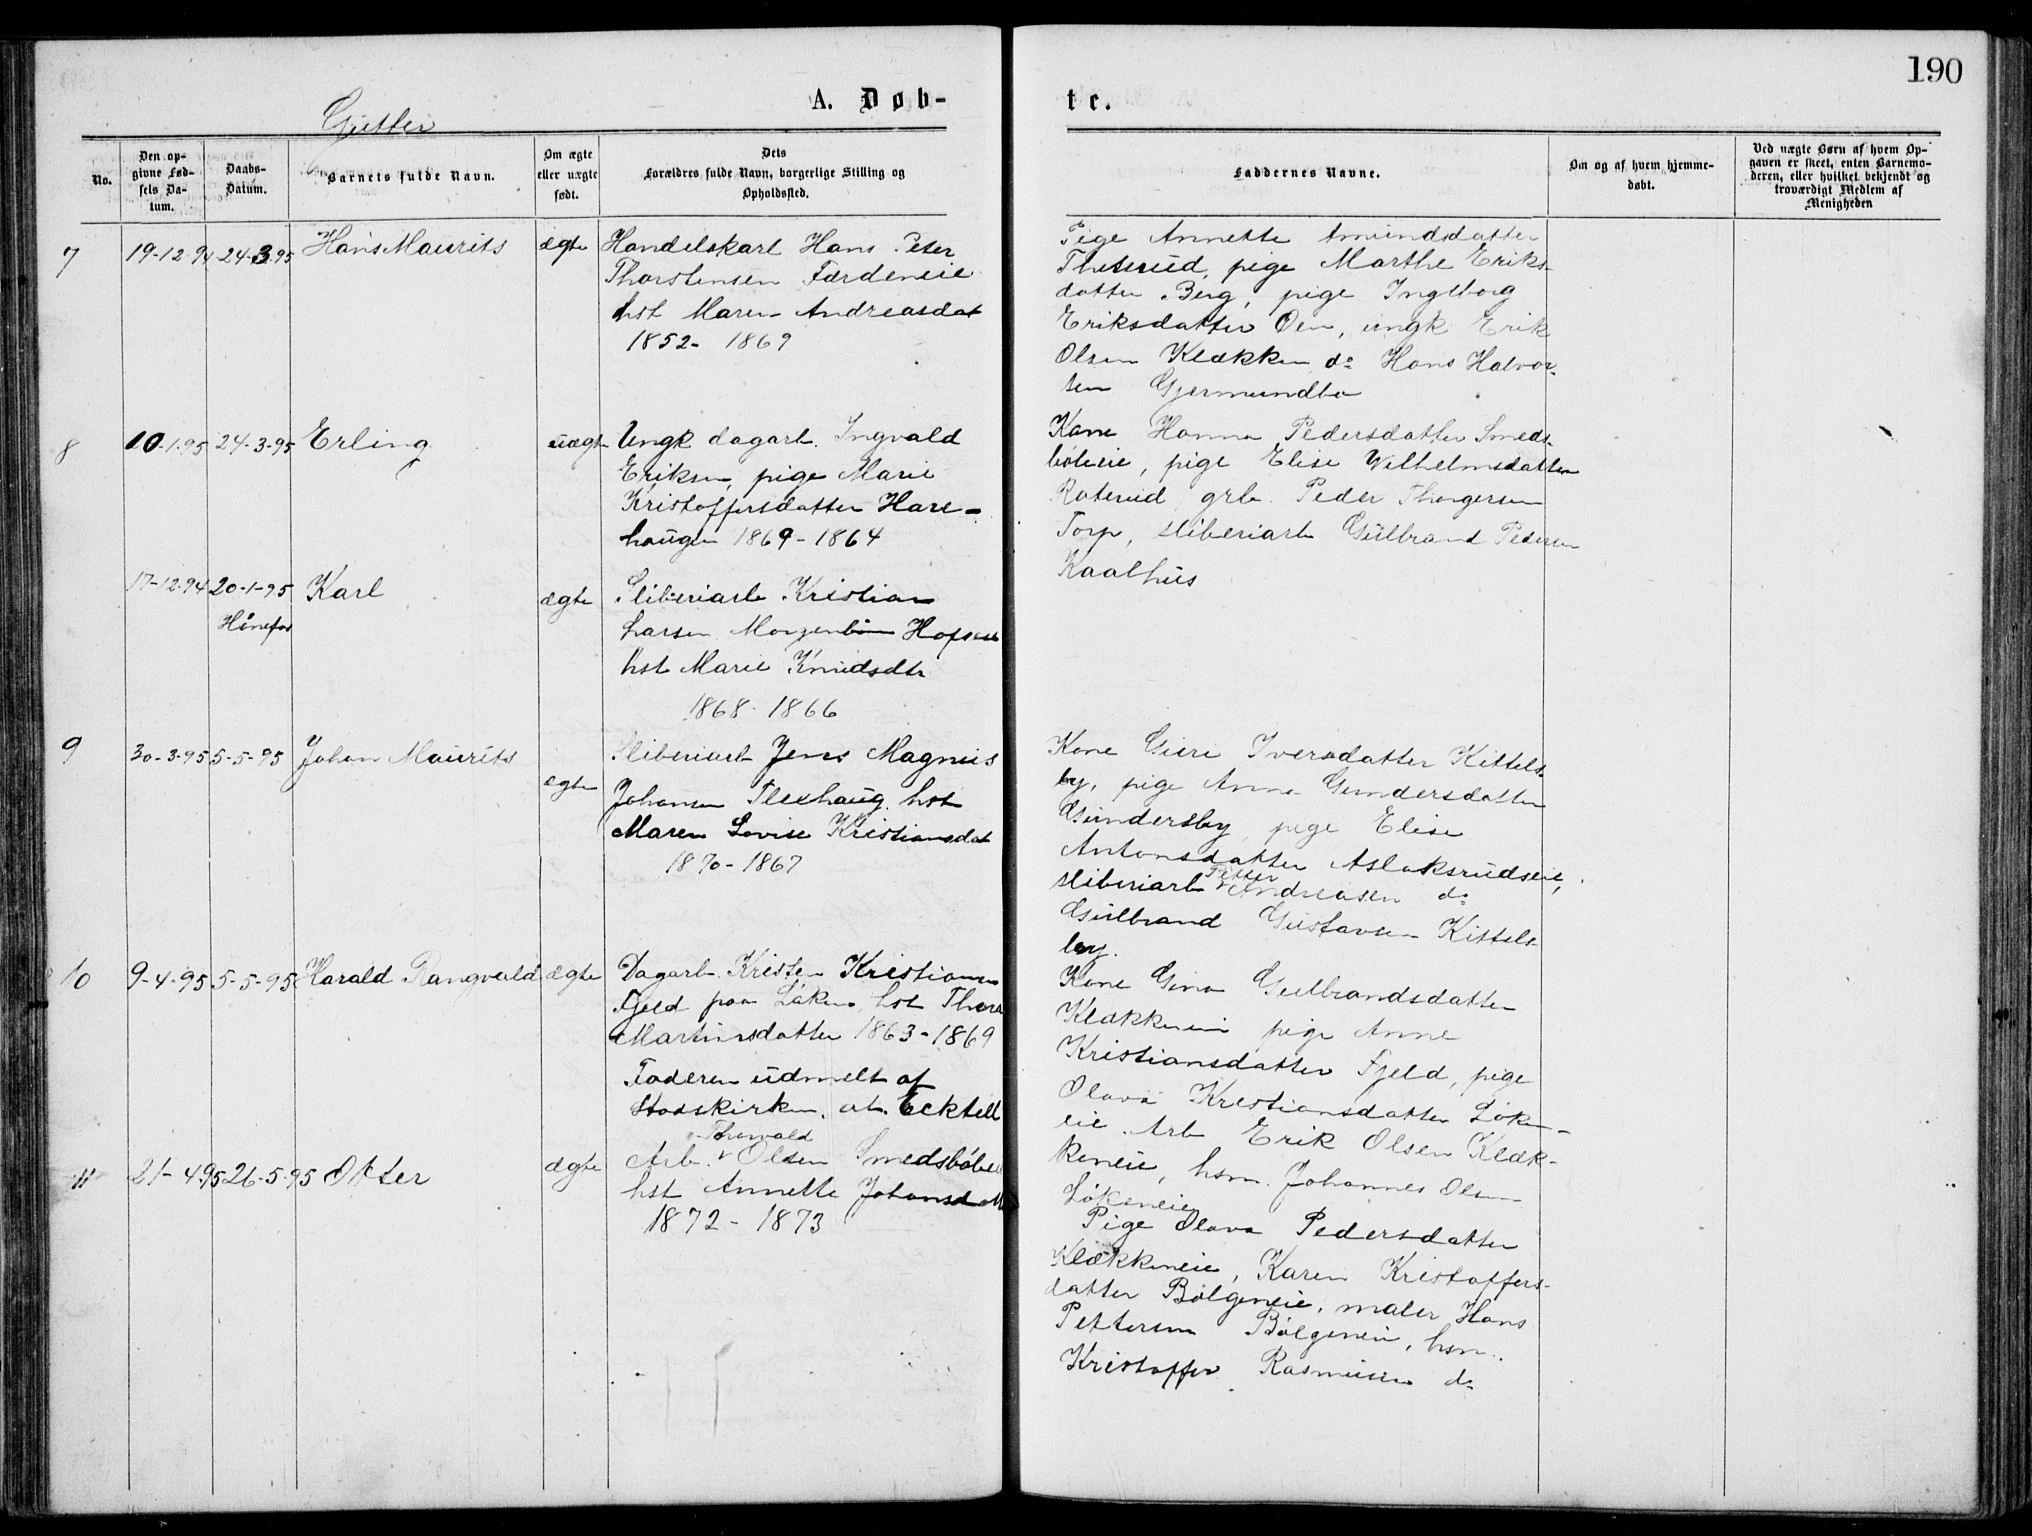 190
Gutter
A. Døb-
te.
No.
Den op-
givne Fød-
sels Da-
tum.
Daabs-
Datum.
Barnets fulde Navn.
Om ægte
eller uægte
født.
Dets
Forældres fulde Navn, borgerlige Stilling og
Opholdssted.
Faddernes Navne.
Om og af hvem hjemme-
døbt.
Ved uægte Børn af hvem Op-
gaven er skeet, enten Barnemo-
deren, eller hvilket bekjendt og
troværdigt Medlem af
Menigheden
7 19-12-94 24-3-95 Hans Maurits ægte
Handelskarl Hans Peter
Thorstensen Færdeneie
hst Maren Andreasdat
1852- 1869
Pige Annette Amundsdatter
Theterud, pige Marthe Eriks-
datter Berg, pige Ingeborg
Eriksdatter Øen, ungk Erik
Olsen Klækken, do Hans Halvor-
sen Gjermundbo
8 10-1-95 24-3-95 Erling uægte
Ungk dagarb. Ingvald
Eriksen, pige Marie
Kristoffersdatter Hare-
haugen 1869-1864
Kone Hanna Pedersdatter Smeds-
böleie, pige Elise Wilhelmsdatter
Raterud, grb. Peder Thorgersen
Torp, sliberiarb Gulbrand Pedersen
Kaalhus
17-12-94 20-1-95 Karl ægte
Hönefos
Sliberiarb Kristian
Larsen Hofseie
hst Marie Knudsdtr
1868 1866
9 30-3-95 5-5-95 Johan Maurits ægte
Sliberiarb Jens Magnus
Johansen Flexhaug. hst
Maren Lovise Kristiansdat
1870-1867
Kone Guri Iversdatter Kittels-
by, pige Anna Gundersdatter
Gundersby, pige Elise
Antonsdatter Aslaksrudseie,
sliberiarb Petter Andreasen do
Gulbrand Gustavsen Kittels-
by.
10 9-4-95 5-5-95 Harald Rangvald ægte
Dagarb. Kristen Kristiansen
Fjeld paa Löken, hst Thora
Martinsdatter 1863-1869
Faderen udmelt af
Statskirken, at. Ecktell
Kone Gina Gulbrandsdatter
Klækkeneie pige Anne
Kristiansdatter Fjeld, pige
Olava Kristiansdatter Löken-
eie. Arb Erik Olsen Klæk-
keneie, hsm. Johannes Olsen
Lökeneie
11 21-4-95 26-5-95 Otter ægte
Arb. Thorvald Olsen Smedsböleie
hst Annette Johansdatt
1872-1873
Pige Olava Pedersdatter
Klækkeneie, Karen Kristoffers-
datter Bölgeneie, maler Hans
Pettersen Bölgeneie, hsm.
Kristoffer Rasmusen do